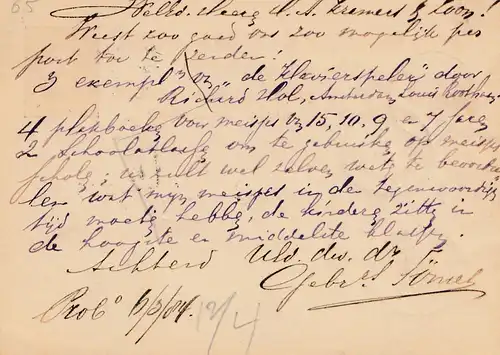 65
Weled. Heeren H. A. Kramers & Zoon!
Weest zoo goed ons zoo mogelijk per
post toe te zenden:
3 exempl. v. "de klavierspeler" door
Richard Hol, Amsterdam, Louis
4 plakboeken voor meisjes v. 15, 10, 9 en 7 jaren
2 Schoolatlassen om te gebruiken op meisjes
school; u zult wel zelven weten te beoordee
len wat mijn meisjes in den tegenwoordigen
tijd moeten hebben, de kinderen zitten in
de hoogste en middelste klassen.
Achtend Uld. dw. dr.
Gebrs.
Prob° 6/3/84.
12/4